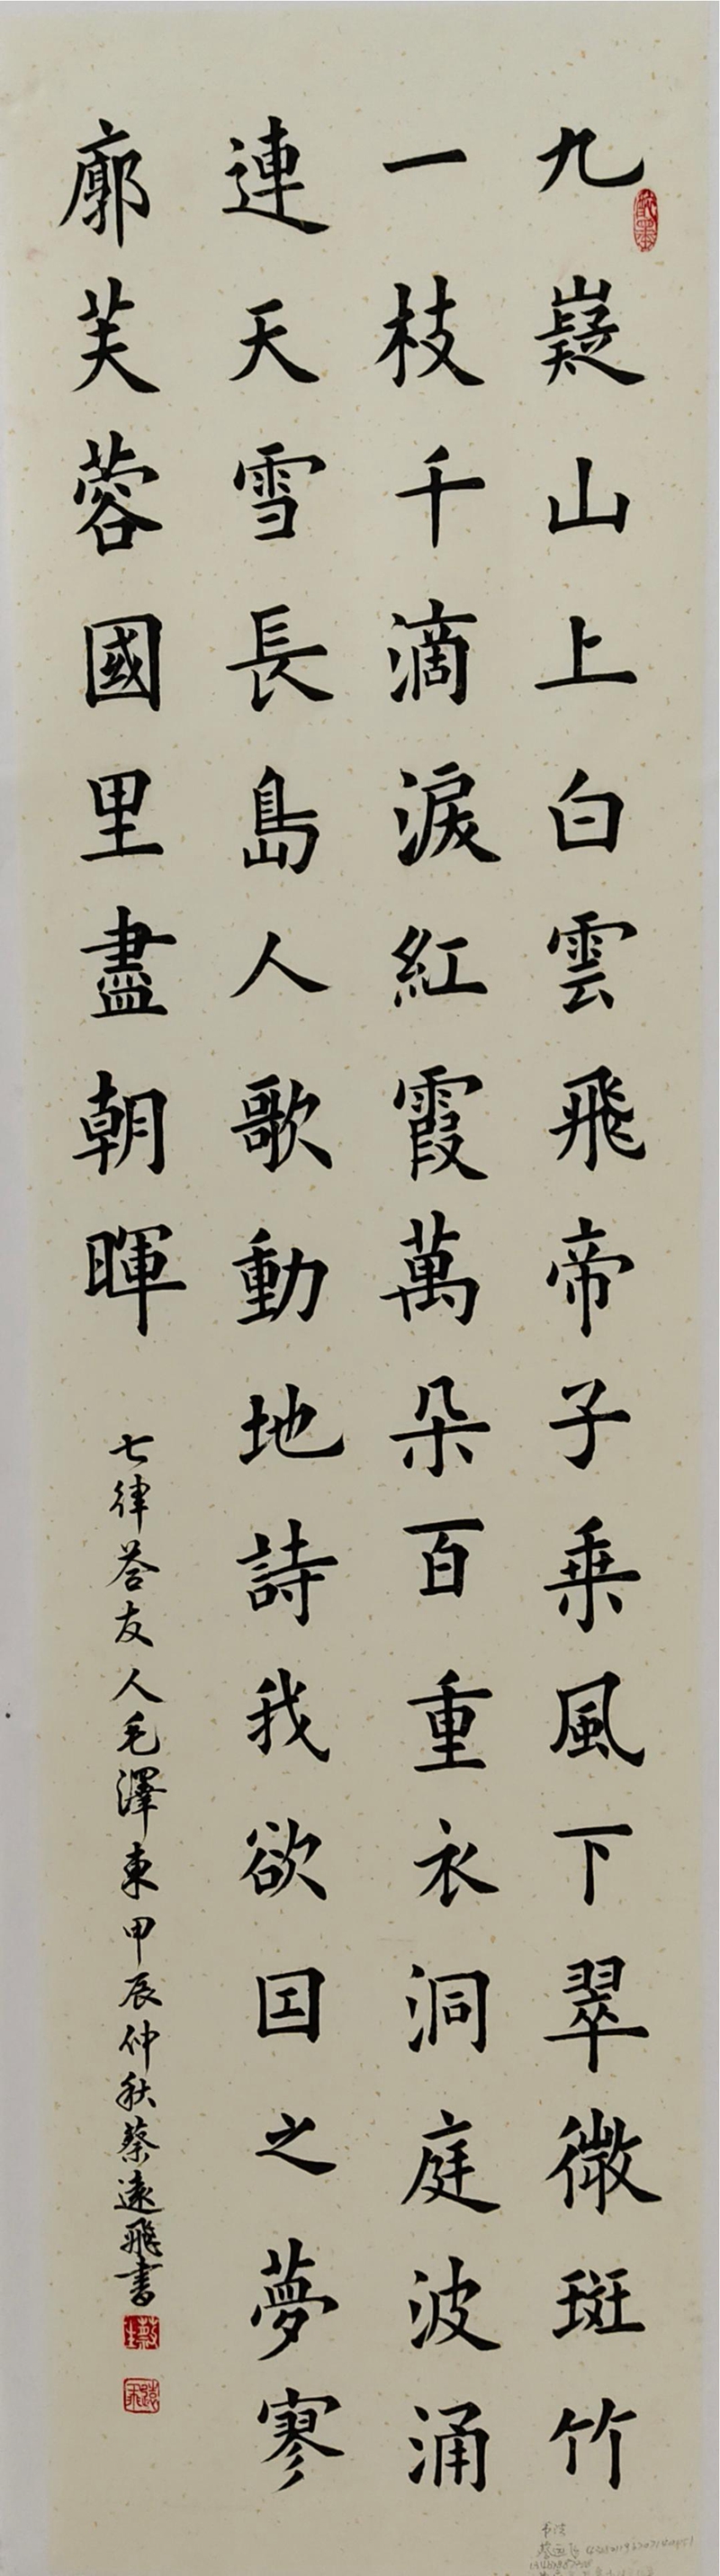 九嶷山上白雲飛帝子乗風下翠微斑竹
一枝千滴淚紅霞萬朵百重衣洞庭波涌
連天雪長島人歌動地詩我欲囙之夢寥
廓芙蓉國里盡朝暉
七律荅友人毛澤東甲辰仲秋蔡遠飛書